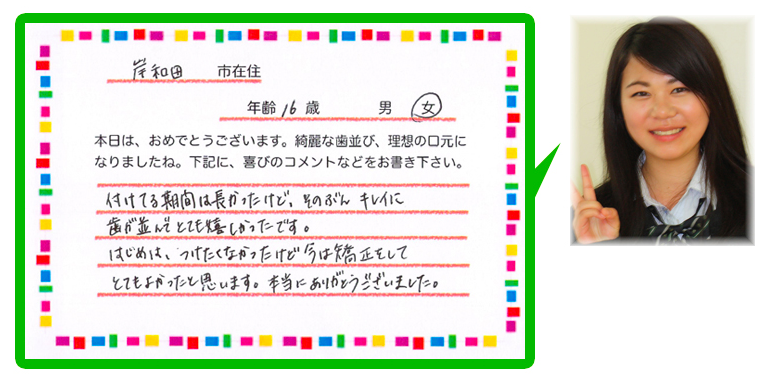 岸和田 市在住
年齢 16 歳 男 女
本日は、おめでとうございます。綺麗な歯並び、理想の口元に
なりましたね。下記に、喜びのコメントなどをお書き下さい。
付けてる期間は長かったけど、そのぶん キレイに
歯が並んでとても嬉しかったです。
はじめは、つけたくなかったけど今は矯正をして
とてもよかったと思います。本当にありがとうございました。